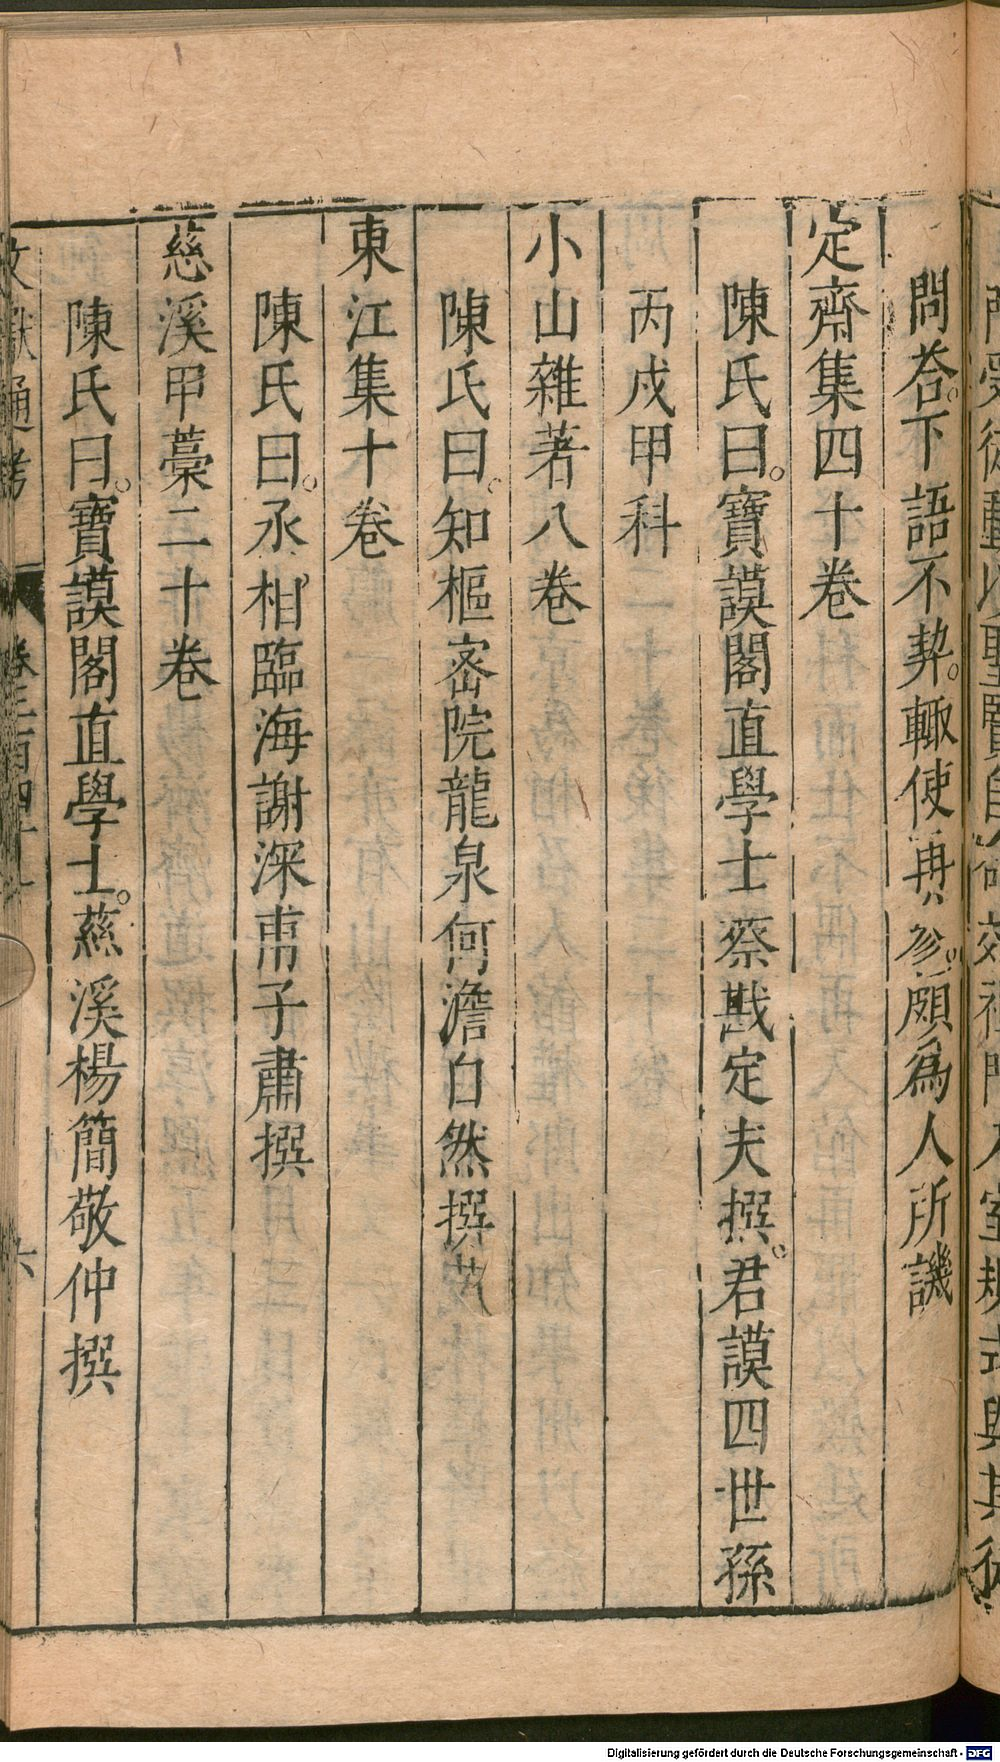 問荅。下語不契。輙使再參。頗為人所譏
定齋集四十卷
陳氏曰。寶謨閣直學士蔡戡定夫撰。君謨四世孫
丙戌甲科
小山雜著八卷
陳氏曰。知樞宻院龍泉何澹自然撰
東江集十卷
陳氏曰。丞相臨海謝深甫子肅撰
慈溪甲藁二十卷
陳氏曰。寶謨閣直學士。慈溪楊簡敬仲撰
文獻通考 卷二百四十一 六
Digitalisierung gefördert durch die Deutsche Forschungsgemeinschaft - DFG